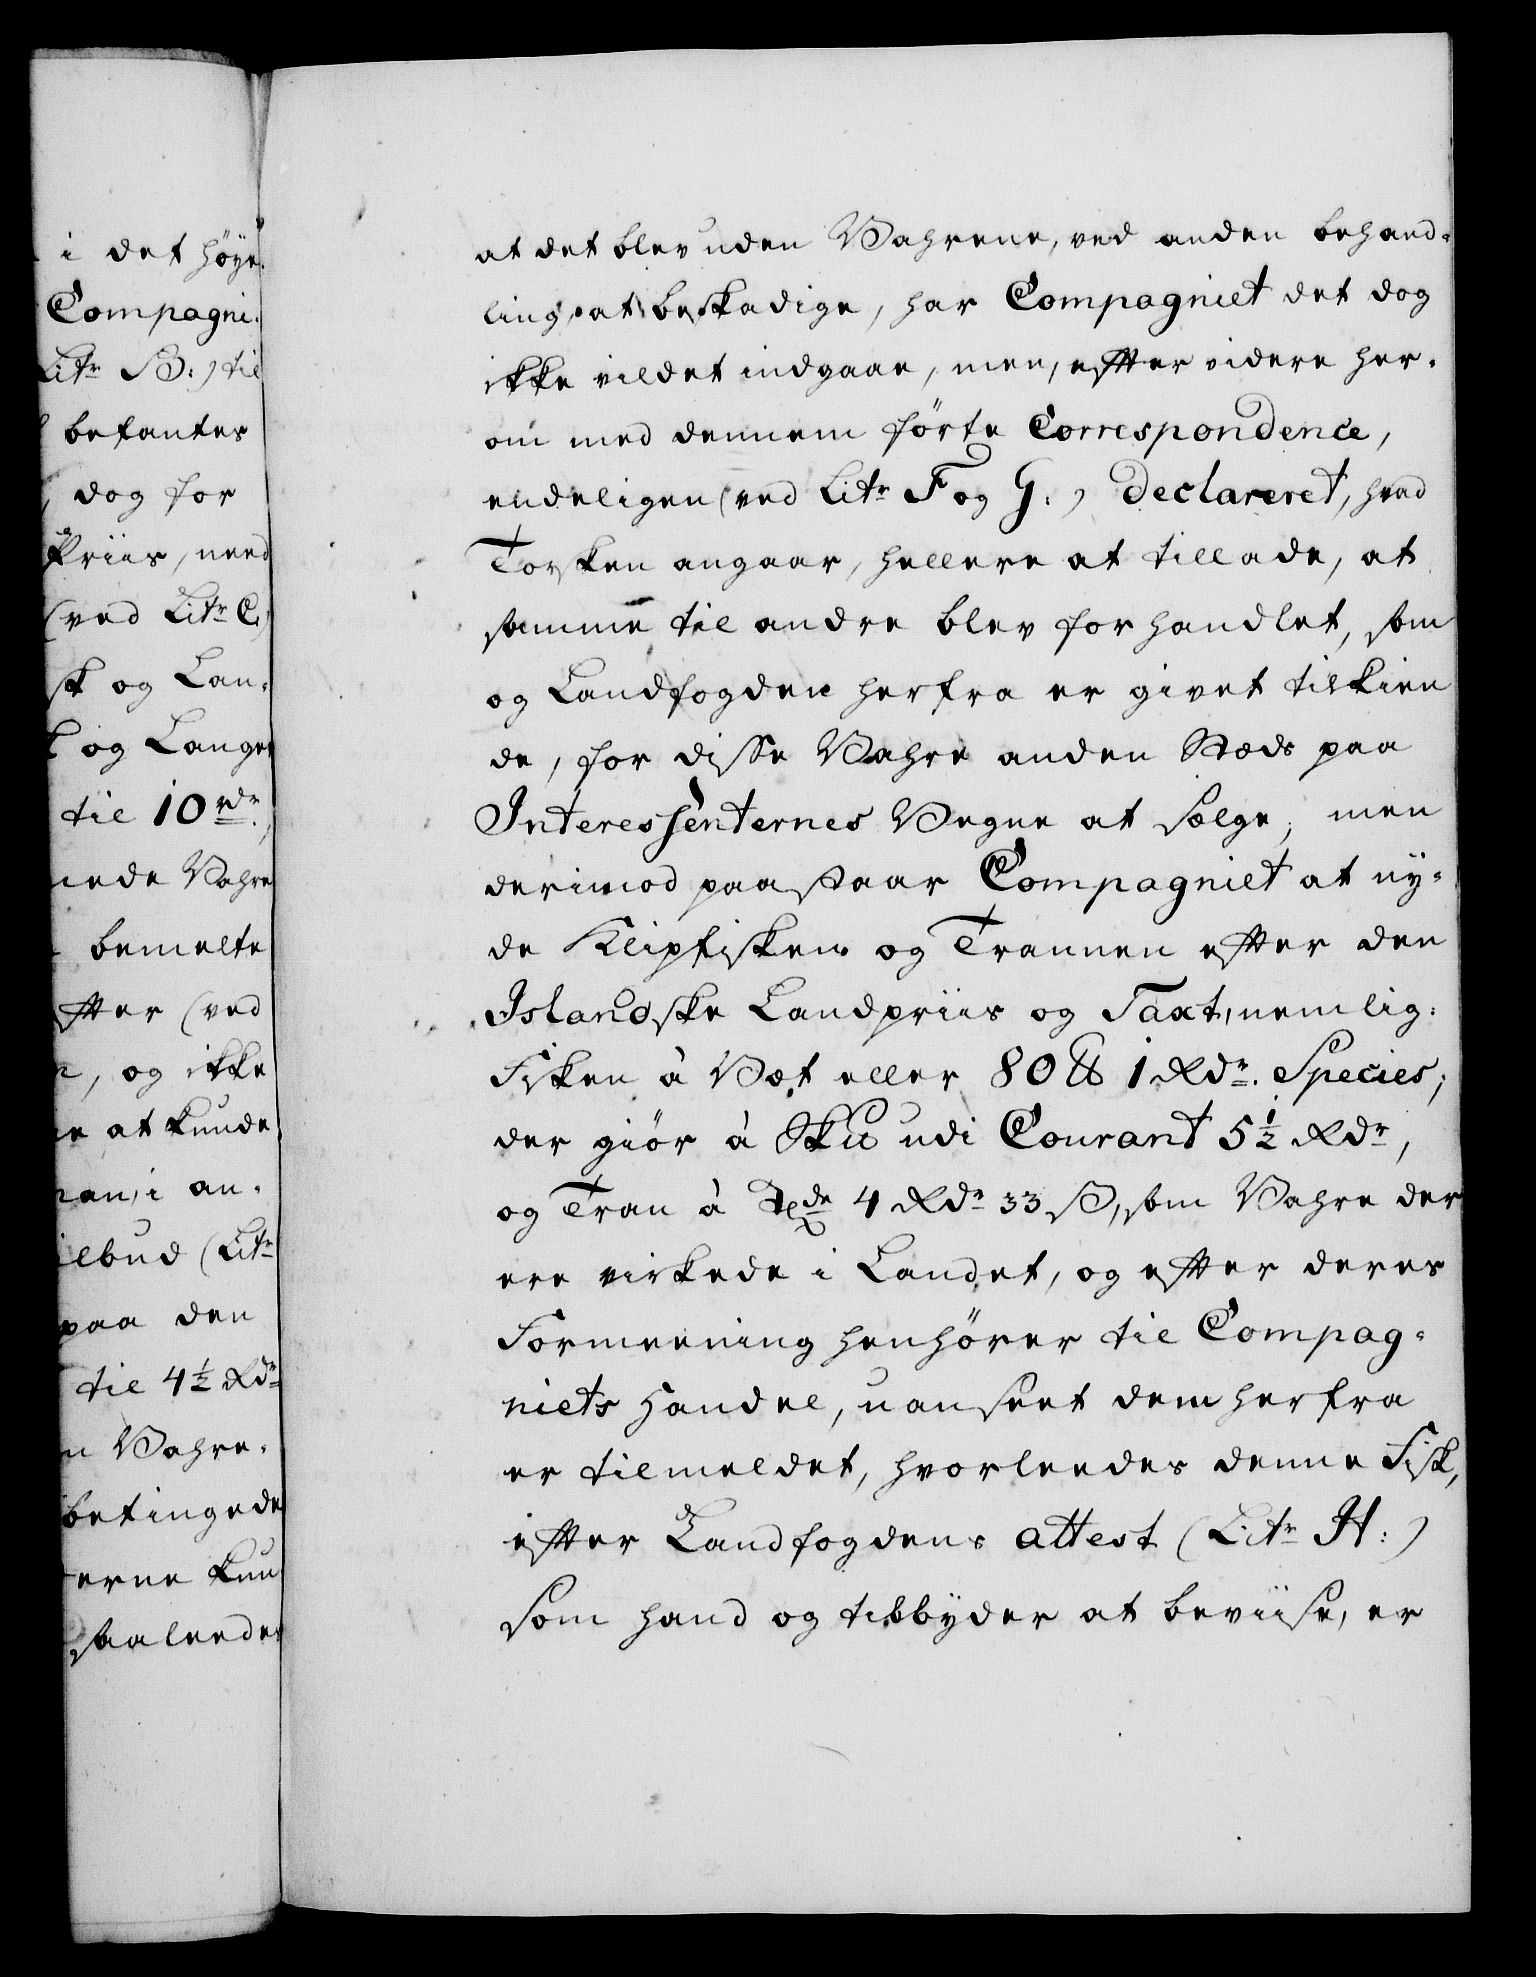 i det høye
Compagni:
Litr B:) til
befantes
dog for
Priis, need
(ved Litr C:)
sk og Lan-
og Langer
til 10 rdr.,
Vahre
bemelte
ffter (ved
og ikke
at kunde
an, i an-
ilbud (Litr
paa den
til 4½ Rdr
Vahre-
betingede
erne kun
saaleedes
at det blev uden Vahrene, ved anden behand-
ling, at beskadige, har Compagniet det dog
ikke vildet indgaae, men, effter videre her-
om med dennem førte Correspondence,
endeligen (ved Litr F og G:) declareret, hvad
Torsken angaar, hellere at tillade, at
samme til andre blev forhandlet, som
og Landfogden herfra er givet tilkien
de, for disse Vahre anden Stæds paa
Interessenternes Vegne at sælge; men
derimod paastaar Compagniet at ny-
de Klipfisken og Trannen effter den
Islandske Landpriis og Taxt, nemlig:
Fisken à Væt eller 80 ℔ 1 Rdr. Species,
der giør à Sk℔ udi Courant 5½ Rdr,
og Tran à Tde 4 Rdr 33 ß, som Vahre der
ere virkede i Landet, og effter deres
Formeening henhører til Compag-
niets Handel, uanseet dem herfra
er tilmeldet, hvorleedes denne Fisk,
effter Landfogdens attest (Litr H:)
som hand og tilbyder at beviise, er